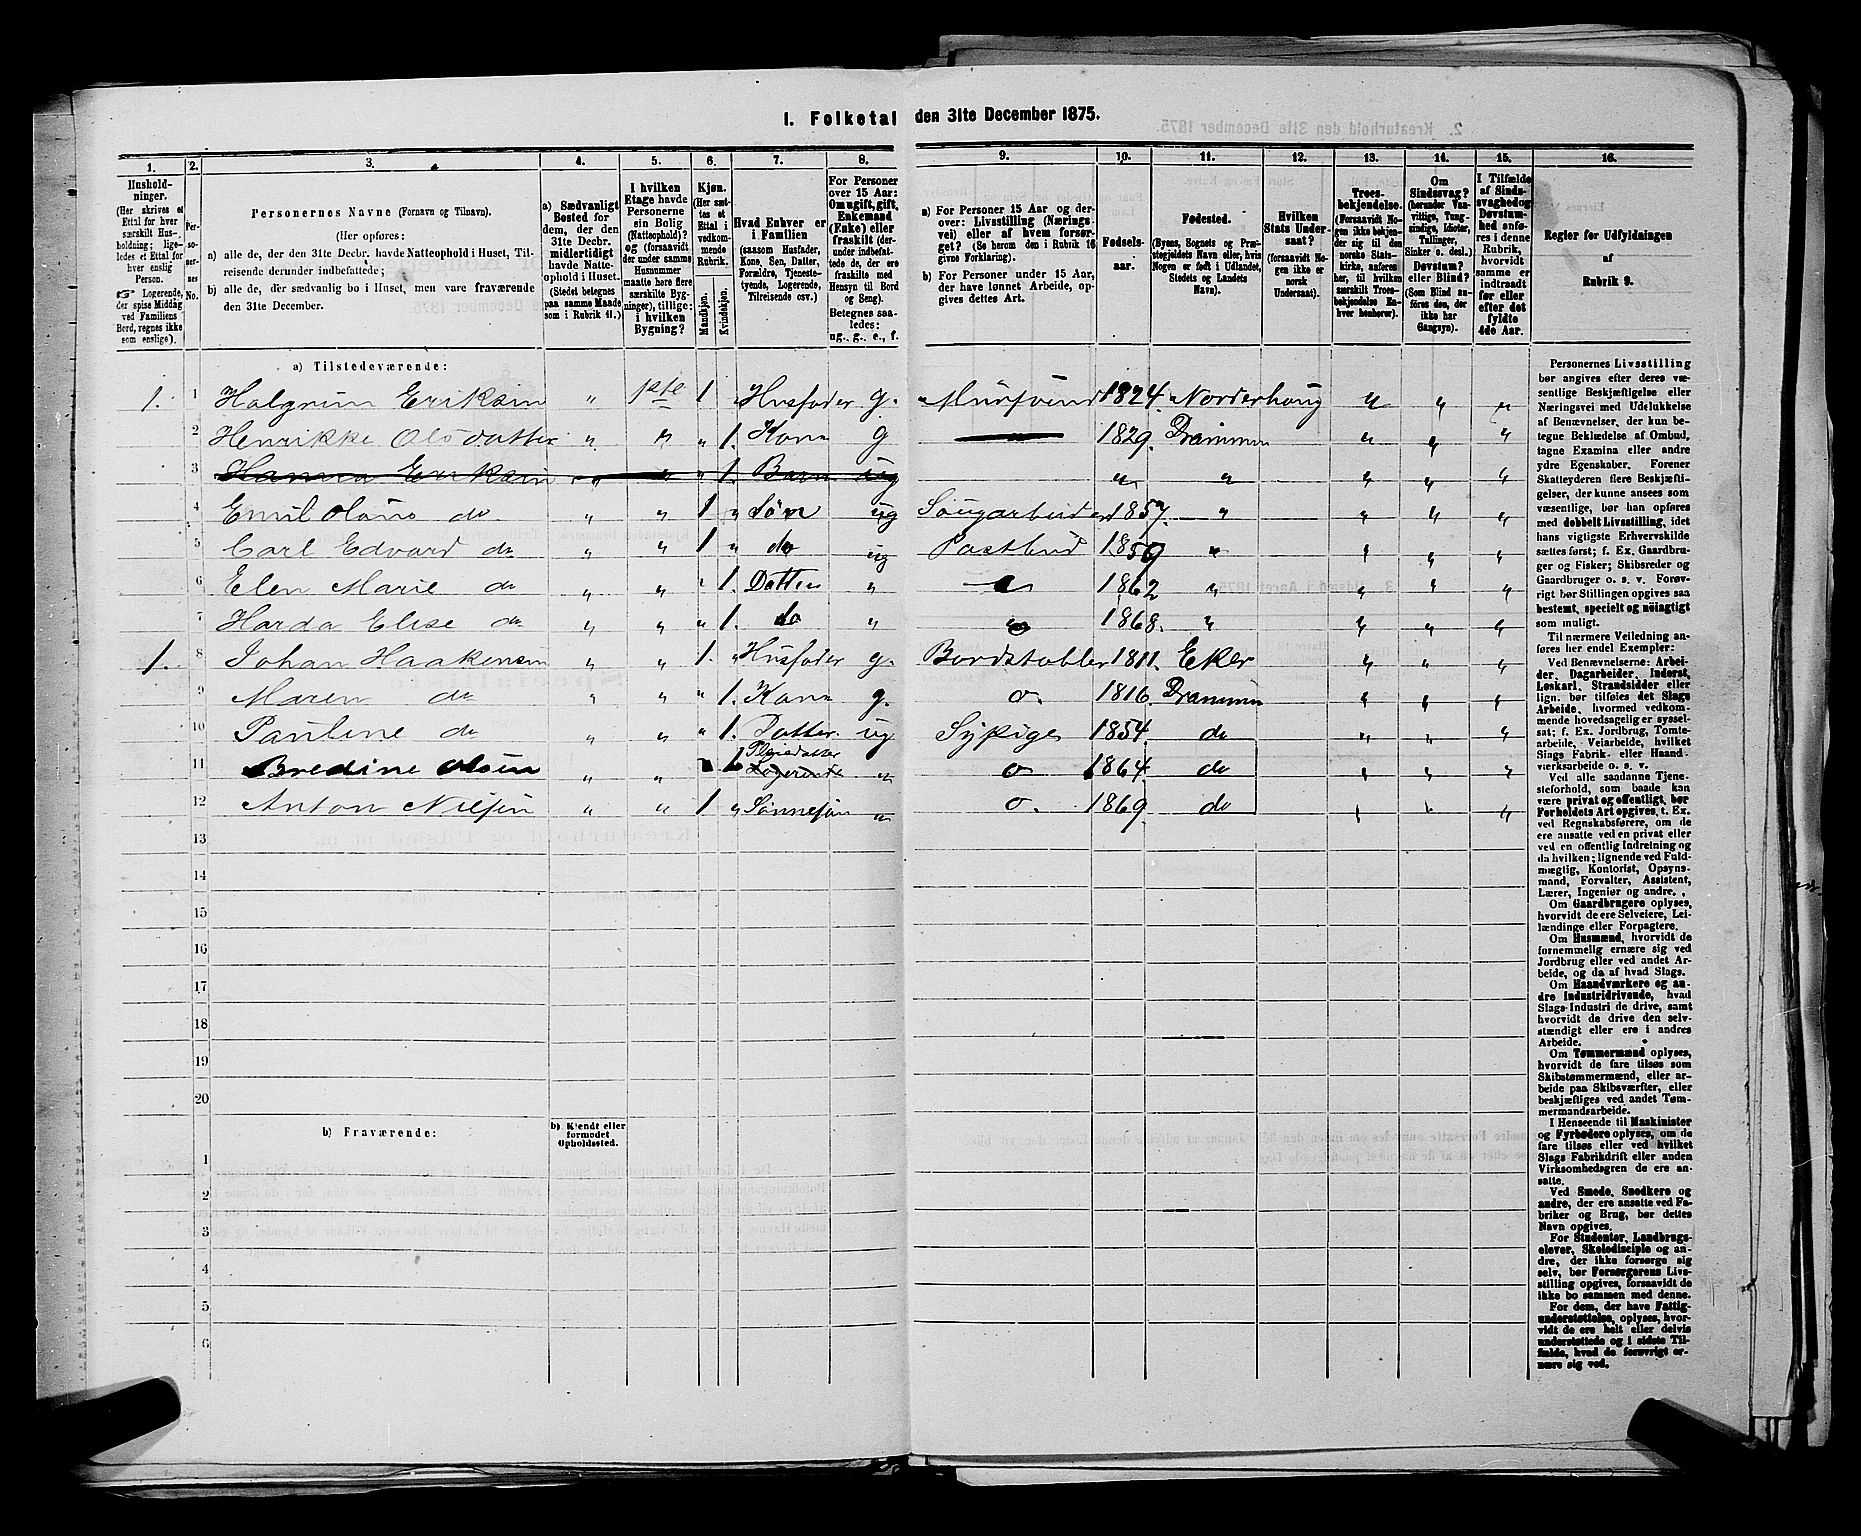 1. Folketal den 31te December 1875.
1. 2. 3. 4. 5. 6. 7. 8. 9. 10. 11. 12. 13. 14. 15. 16.
Hushold-
ninger.
(Her skrives et
Ettal for hver
særskilt Hus-
holdning; lige-
ledes et Ettal for
hver enslig
Person.
☞ Logerende,
der spise Middag
ved Familiens
Bord, regnes ikke
som enslige).
Per-
so-
ner-
nes
No.
Personernes Navne (Fornavn og Tilnavn).
(Her opføres:
a) alle de, der den 31te Decbr. havde Natteophold i Huset, Til-
reisende derunder indbefattede;
b) alle de, der sædvanlig bo i Huset, men vare fraværende
den 31te December.
a) Sædvanligt
Bosted for
dem, der den
31te Decbr.
midlertidigt
havde Natte-
ophold i Huset.
(Stedet betegnes
paa samme Maade
som i Rubrik 11.)
I hvilken
Etage havde
Personerne
sin Bolig
(Natteophold)?
og (forsaavidt
der under samme
Husnummer
maatte høre flere
særskilte Byg-
ninger), tillige:
i hvilken
Bygning?
Kjøn.
(Her sæt-
tes et
Ettal i
vedkom-
mende
Rubrik.
Mandkjøn.
Kvindekjøn.
Hvad Enhver er
i Familien
(saasom Husfader,
Kone, Søn, Datter,
Forældre, Tjeneste-
tyende, Logerende,
Tilreisende osv.)
For Personer
over 15 Aar:
Om ugift, gift,
Enkemand
(Enke) eller
fraskilt (der-
under indbefat-
tede de, der ere
fraskilte med
Hensyn til Bord
og Seng).
Betegnes saa-
ledes:
ug., g., e., f.
a) For Personer 15 Aar og der-
over: Livsstilling (Nærings-
vei) eller af hvem forsør-
get? (Se herom den i Rubrik 16
givne Forklaring).
b) For Personer under 15 Aar,
der have lønnet Arbeide, op-
gives dettes Art.
Fødsels-
aar.
Fødested.
(Byens, Sognets og Præ-
stegjeldets Navn eller, hvis
Nogen er født i Udlandet,
Stedets og Landets
Navn).
Hvilken
Stats Under-
saat?
(forsaavidt No-
gen ikke er
norsk
Undersaat).
Troes-
bekjendelse.
(Forsaavidt No-
gen ikke bekjen-
der sig til den
norske Stats-
kirke, anføres
her, til hvilken
særskilt Troes-
bekjendelse En-
hver henhører).
Om
Sindssvag?
(herunder Van-
vittige, Tung-
sindige, Idioter,
Tullinger,
Sinker o. desl.)
Døvstum?
eller Blind?
(Som Blind an-
føres den, der
ikke har
Gangsyn).
I Tilfælde
af Sinds-
svaghed og
Døvstum-
hed anfø-
res i denne
Rubrik,
hvorvidt
samme er
indtraadt
før eller
efter det
fyldte
4de Aar.
Regler for Udfyldningen
af
Rubrik 9.
a) Tilstedeværende:
1. 1 Halgrim Eriksen " 1ste 1 " Husfader g. Mursvend 1824. Norderhoug " " "
2 Henrikke Olsdatter " " " 1. Kone g 1829. Drammen " " "
3 Hanna Eriksen " " " 1. Barn ug " " " " "
4 Emil Olaus do " " 1 " Søn ug Saugarbeider 1857. " " " "
5 Carl Edvard do " " 1 " do ug Postbud 1859 " " " "
6 Elen Marie do " " " 1. Datter " 1862 " " " "
7 Harda Elise do " " " 1. do " " 1868. " " " "
1. 8 Johan Haakensen " " 1. " Husfader g. Bordstabler 1811. Eker " " "
9 Maren do " " " 1. Kone g. o. 1816. Drammen " " "
10 Pauline do " " " 1. Datter ug Sypige 1854. do " " "
11 Bredine Olsen " " 1 Pleiedatter Logerende " o 1864. do " " "
12 Anton Nilsen " " 1 " Sønnesøn " o. 1869. do " " "
13
14
15
16
17
18
19
20
b) Fraværende:
b) Kjendt eller
formodet
Opholdssted.
1
2
3
4
5
6
Personernes Livsstilling
bør angives efter deres væ-
sentlige Beskjæftigelse eller
Næringsvei med Udelukkelse
af Benævnelser, der kun be-
tegne Beklædelse af Ombud,
tagne Examina eller andre
ydre Egenskaber. Forener
Skatteyderen flere Beskjæfti-
gelser, der kunne ansees som
væsentlige, bør han opføres
med dobbelt Livsstilling, idet
hans vigtigste Erhvervskilde
sættes først; f. Ex. Gaardbru-
ger og Fisker; Skibsreder og
Gaardbruger o. s. v. Forøv-
rigt bør Stillingen opgives saa
bestemt, specielt og nøiagtigt
som muligt.
Til nærmere Veiledning an-
føres her endel Exempler:
Ved Benævnelserne: Arbei-
der, Dagarbeider, Inderst,
Løskarl, Strandsidder eller
lign. bør tilføies det Slags
Arbeide, hvormed vedkom-
mende hovedsagelig er syssel-
sat; f. Ex. Jordbrug, Tomte-
arbeide, Veiarbeide, hvilket
Slags Fabrik- eller Haand-
værksarbeide o. s. v.
Ved alle saadanne Tjene-
steforhold, som baade kan
være privat og offentligt, bør
Forholdets Art opgives, t. Ex.
ved Regnskabsførere, om de
ere ansatte ved en privat eller
ved en offentlig Indretning og
da hvilken; lignende ved Fuld-
mægtig, Kontorist, Opsyns-
mand, Forvalter, Assistent,
Lærer, Ingeniør og andre.
Om Gaardbrugere oplyses,
hvorvidt de ere Selveiere, Lei-
lændinge eller Forpagtere.
Om Husmænd, hvorvidt de
fornemmelig ernære sig ved
Jordbrug eller ved andet Ar-
beide, og da af hvad Slags.
Om Haandværkere og an-
dre Industridrivende, hvad
Slags Industri de drive, samt
hvorvidt de drive den selv-
stændigt eller ere i andres
Arbeide.
Om Tømmermænd oplyses,
hvorvidt de fare tilsøs som
Skibstømmermænd, eller ar-
beide paa Skibsværfter, eller
beskjæftiges ved andet Tøm-
mermandsarbeide.
I Henseende til Maskinister
og Fyrbødere oplyses, om de
fare tilsøs eller ved hvilket
Slags Fabrikdrift eller anden
Virksomhedsgren de ere an-
satte.
Ved Smede, Snedkere og
andre, der ere ansatte ved Fa-
briker og Brug, bør dettes
Navn opgives.
For Studenter, Landbrugs-
elever, Skoledisciple og an-
dre, der ikke forsørge sig
selv, bør Forsørgerens Livs-
stilling opgives, forsaavidt de
ikke bo sammen med denne.
For dem, der have Fattig-
understøttelse, oplyses, hvor-
vidt de ere helt eller delvis
understøttede og i sidste Til-
fælde, hvad de forøvrigt er-
nære sig ved.